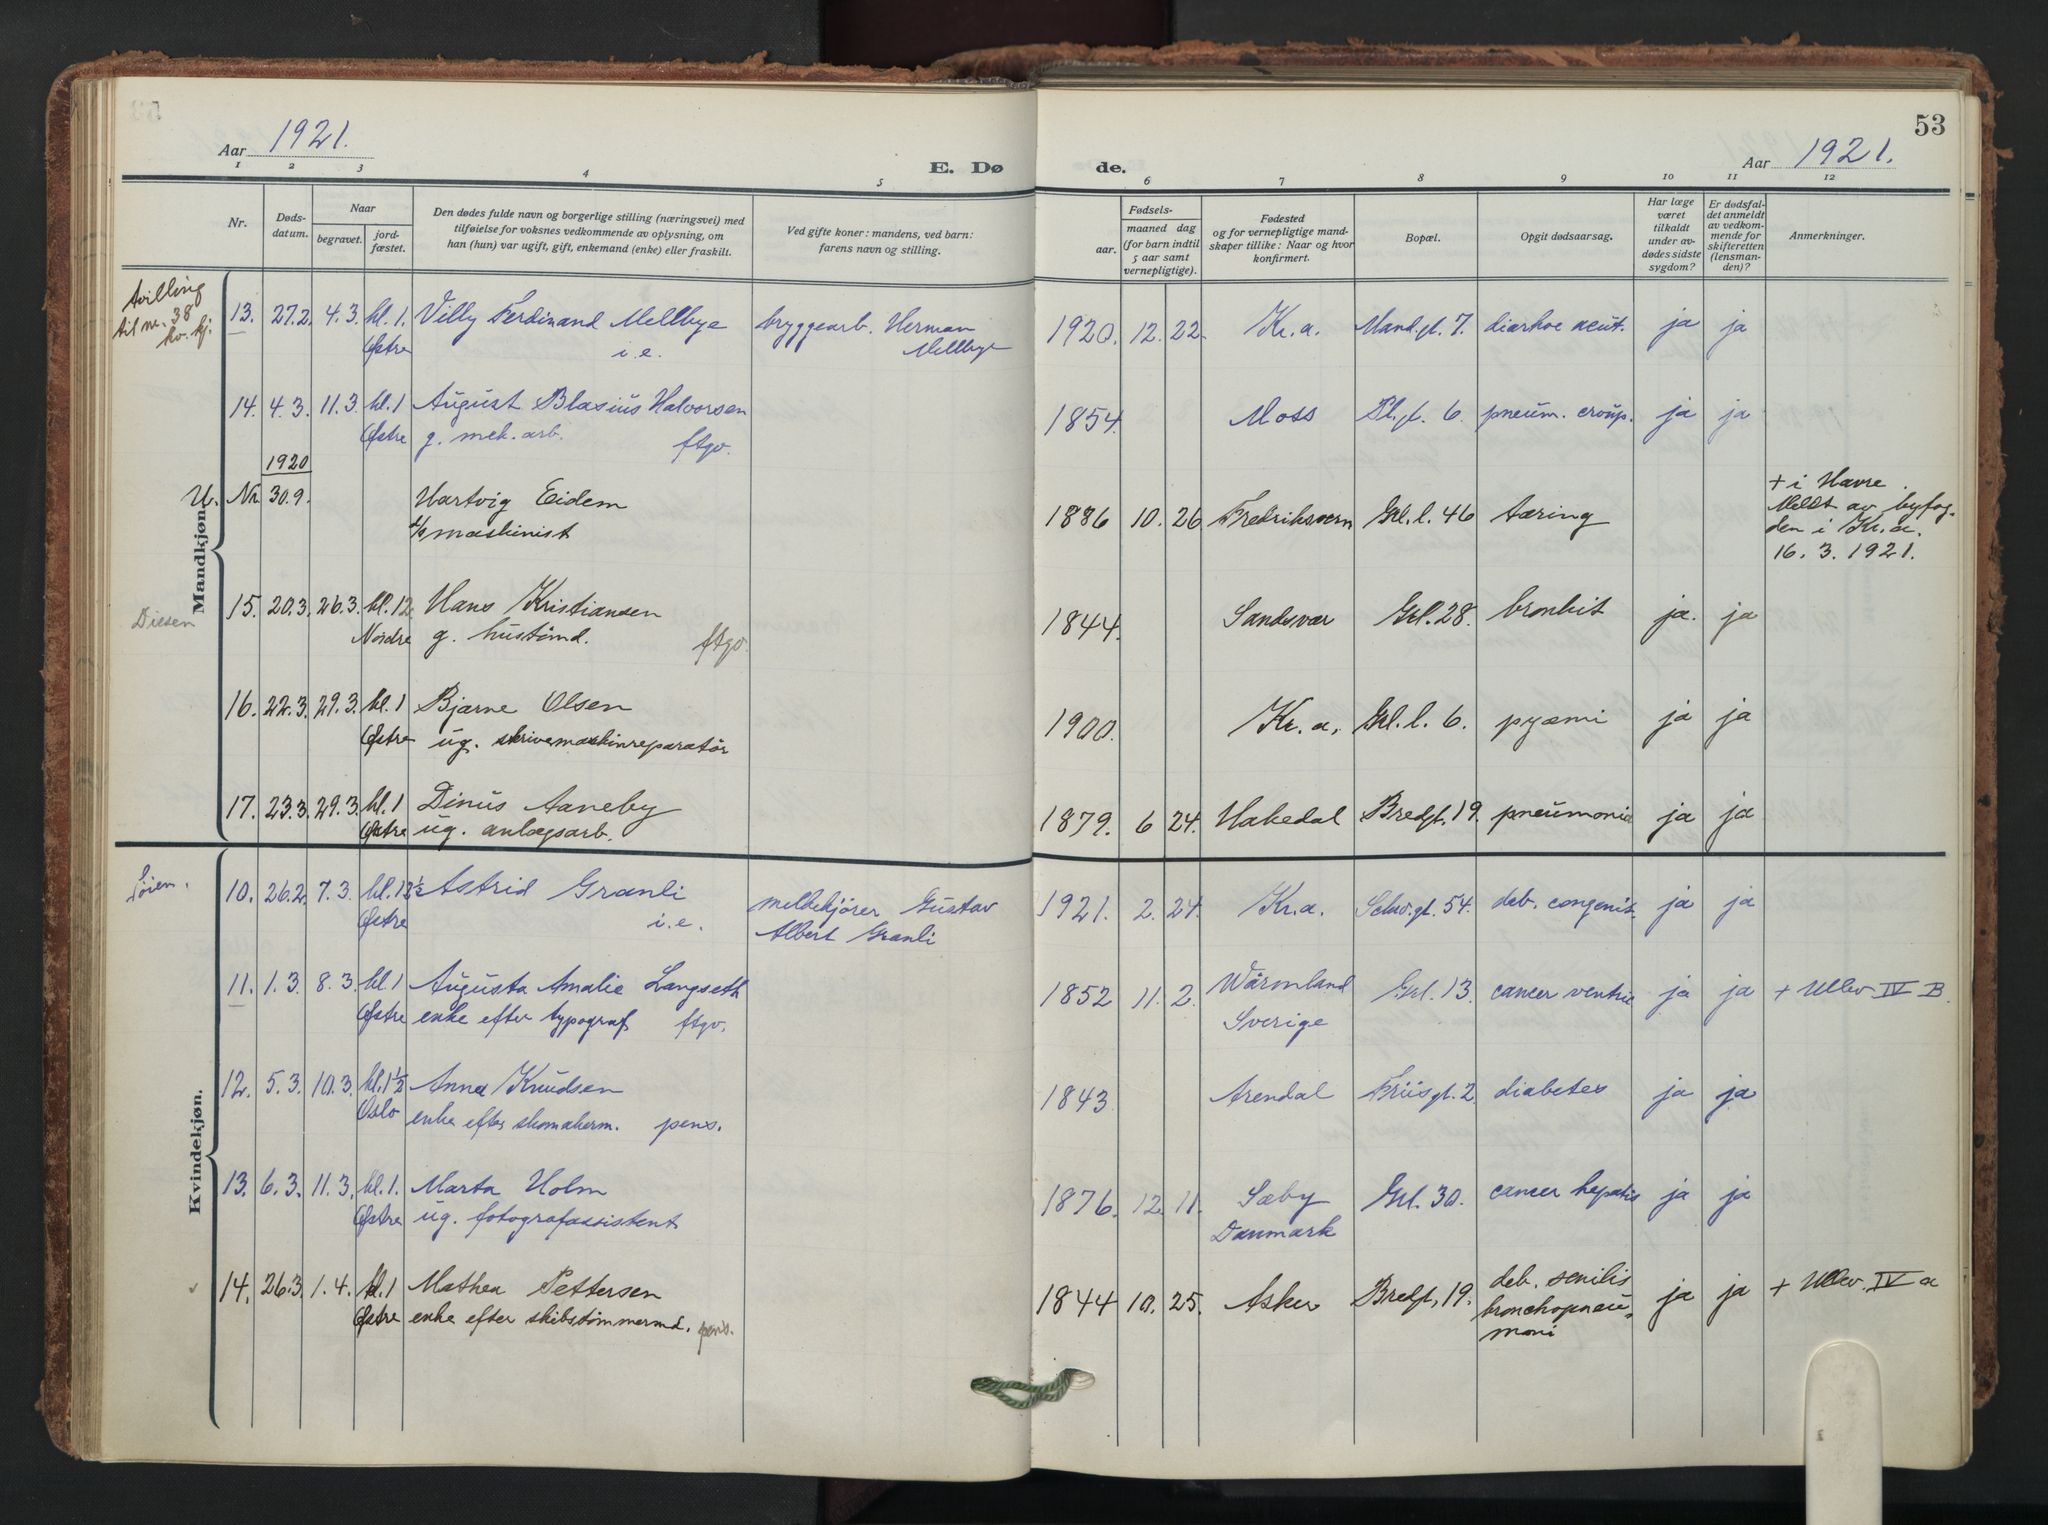 Aar 1921.
E. Dø
de.
Aar 1921.
53
1 2 3 4 5 6 7 8 9 10 11 12
Nr.
Døds-
datum.
Naar
begravet.
jord-
fæstet.
Den dødes fulde navn og borgerlige stilling (næringsvei) med
tilføielse for voksnes vedkommende av oplysning, om
han (hun) var ugift, gift, enkemand (enke) eller fraskilt.
Ved gifte koner: mandens, ved barn:
farens navn og stilling.
Fødsels-
aar.
maaned dag
(for barn indtil
5 aar samt
vernepligtige).
Fødested
og for vernepligtige mand-
skaper tillike: Naar og hvor
konfirmert.
Bopæl.
Opgit dødsaarsag.
Har læge
været
tilkaldt
under av-
dødes sidste
sygdom?
Er dødsfal-
det anmeldt
av vedkom-
mende for
skifteretten
(lensman-
den)?
Anmerkninger.
Mandkjøn.
tvilling
til nr. 38
kv. kj.
13. 27.2. 4.3. kl. 1. Villy Ferdinand Mellbye bryggearb. Herman 1920. 12. 22. Kr.a. Mand.gt. 7. diarhoe acut. ja ja
Østre i.e. Mellbye
14. 4.3. 11.3. kl. 1 August Blasius Halvorsen 1854. Moss Pl.gt. 6. pneum. croup. ja ja
Østre g. mek. arb. ftgv.
1920
U. Nr. 30.9. Hartvig Eidem 1886 10. 26 Fredriksvern Grl. l. 46 tæring + i Havre.
d/s maskinist Meldt av byfog-
den i Kr.a.
16. 3. 1921.
Diesen
15. 20.3. 26.3. kl. 12 Hans Kristiansen 1844. Sandsvær Grl. 28. bronkit ja. ja
Nordre g. hustømd. ftgv.
16. 22.3. 29.3. kl. 1 Bjarne Olsen 1900. Kr.a. Grl. l. 6. pyæmi ja ja
Østre ug. skrivemaskinreparatör
17. 23.3. 29.3. kl. 1 Dinus Aaneby 1879. 6 24. Hakedal Bredgt. 19. pneumonia ja ja
Østre ug. anlægsarb.
Kvindekjøn.
10. 26.2. 7.3. kl. 1 1/2 Astrid Granli melkekjører Gustav 1921. 2. 24. Kr.a. Schw.gt. 54. deb. congenit. ja ja
Østre i.e. Albert Granli
11. 1.3. 8.3. kl. 1 Augusta Amalie Langseth 1852 11. 2. Wärmland Grl. 13. cancer ventric ja ja + Ullev. IV B.
Østre enke efter typograf. ftgv. Sverige
12. 5.3. 10.3. kl. 1 1/2 Anna Knudsen 1843 Arendal Friisgt. 2. diabetes ja ja
Oslo enke efter skomakerm. pens.
13. 6.3. 11.3. kl. 1. Marta Holm 1876. 12. 11. Sæby Grl. 30. cancer hepatis ja ja
Østre ug. fotografassistent Danmark
14. 26.3. 1.4. kl. 1 Mathea Pettersen 1844 10. 25. Asker Bredgt. 19. deb. senilis ja ja + Ullev. IV a
Østre enke efter skibstømmermd. pens. bronchopneu-
moni